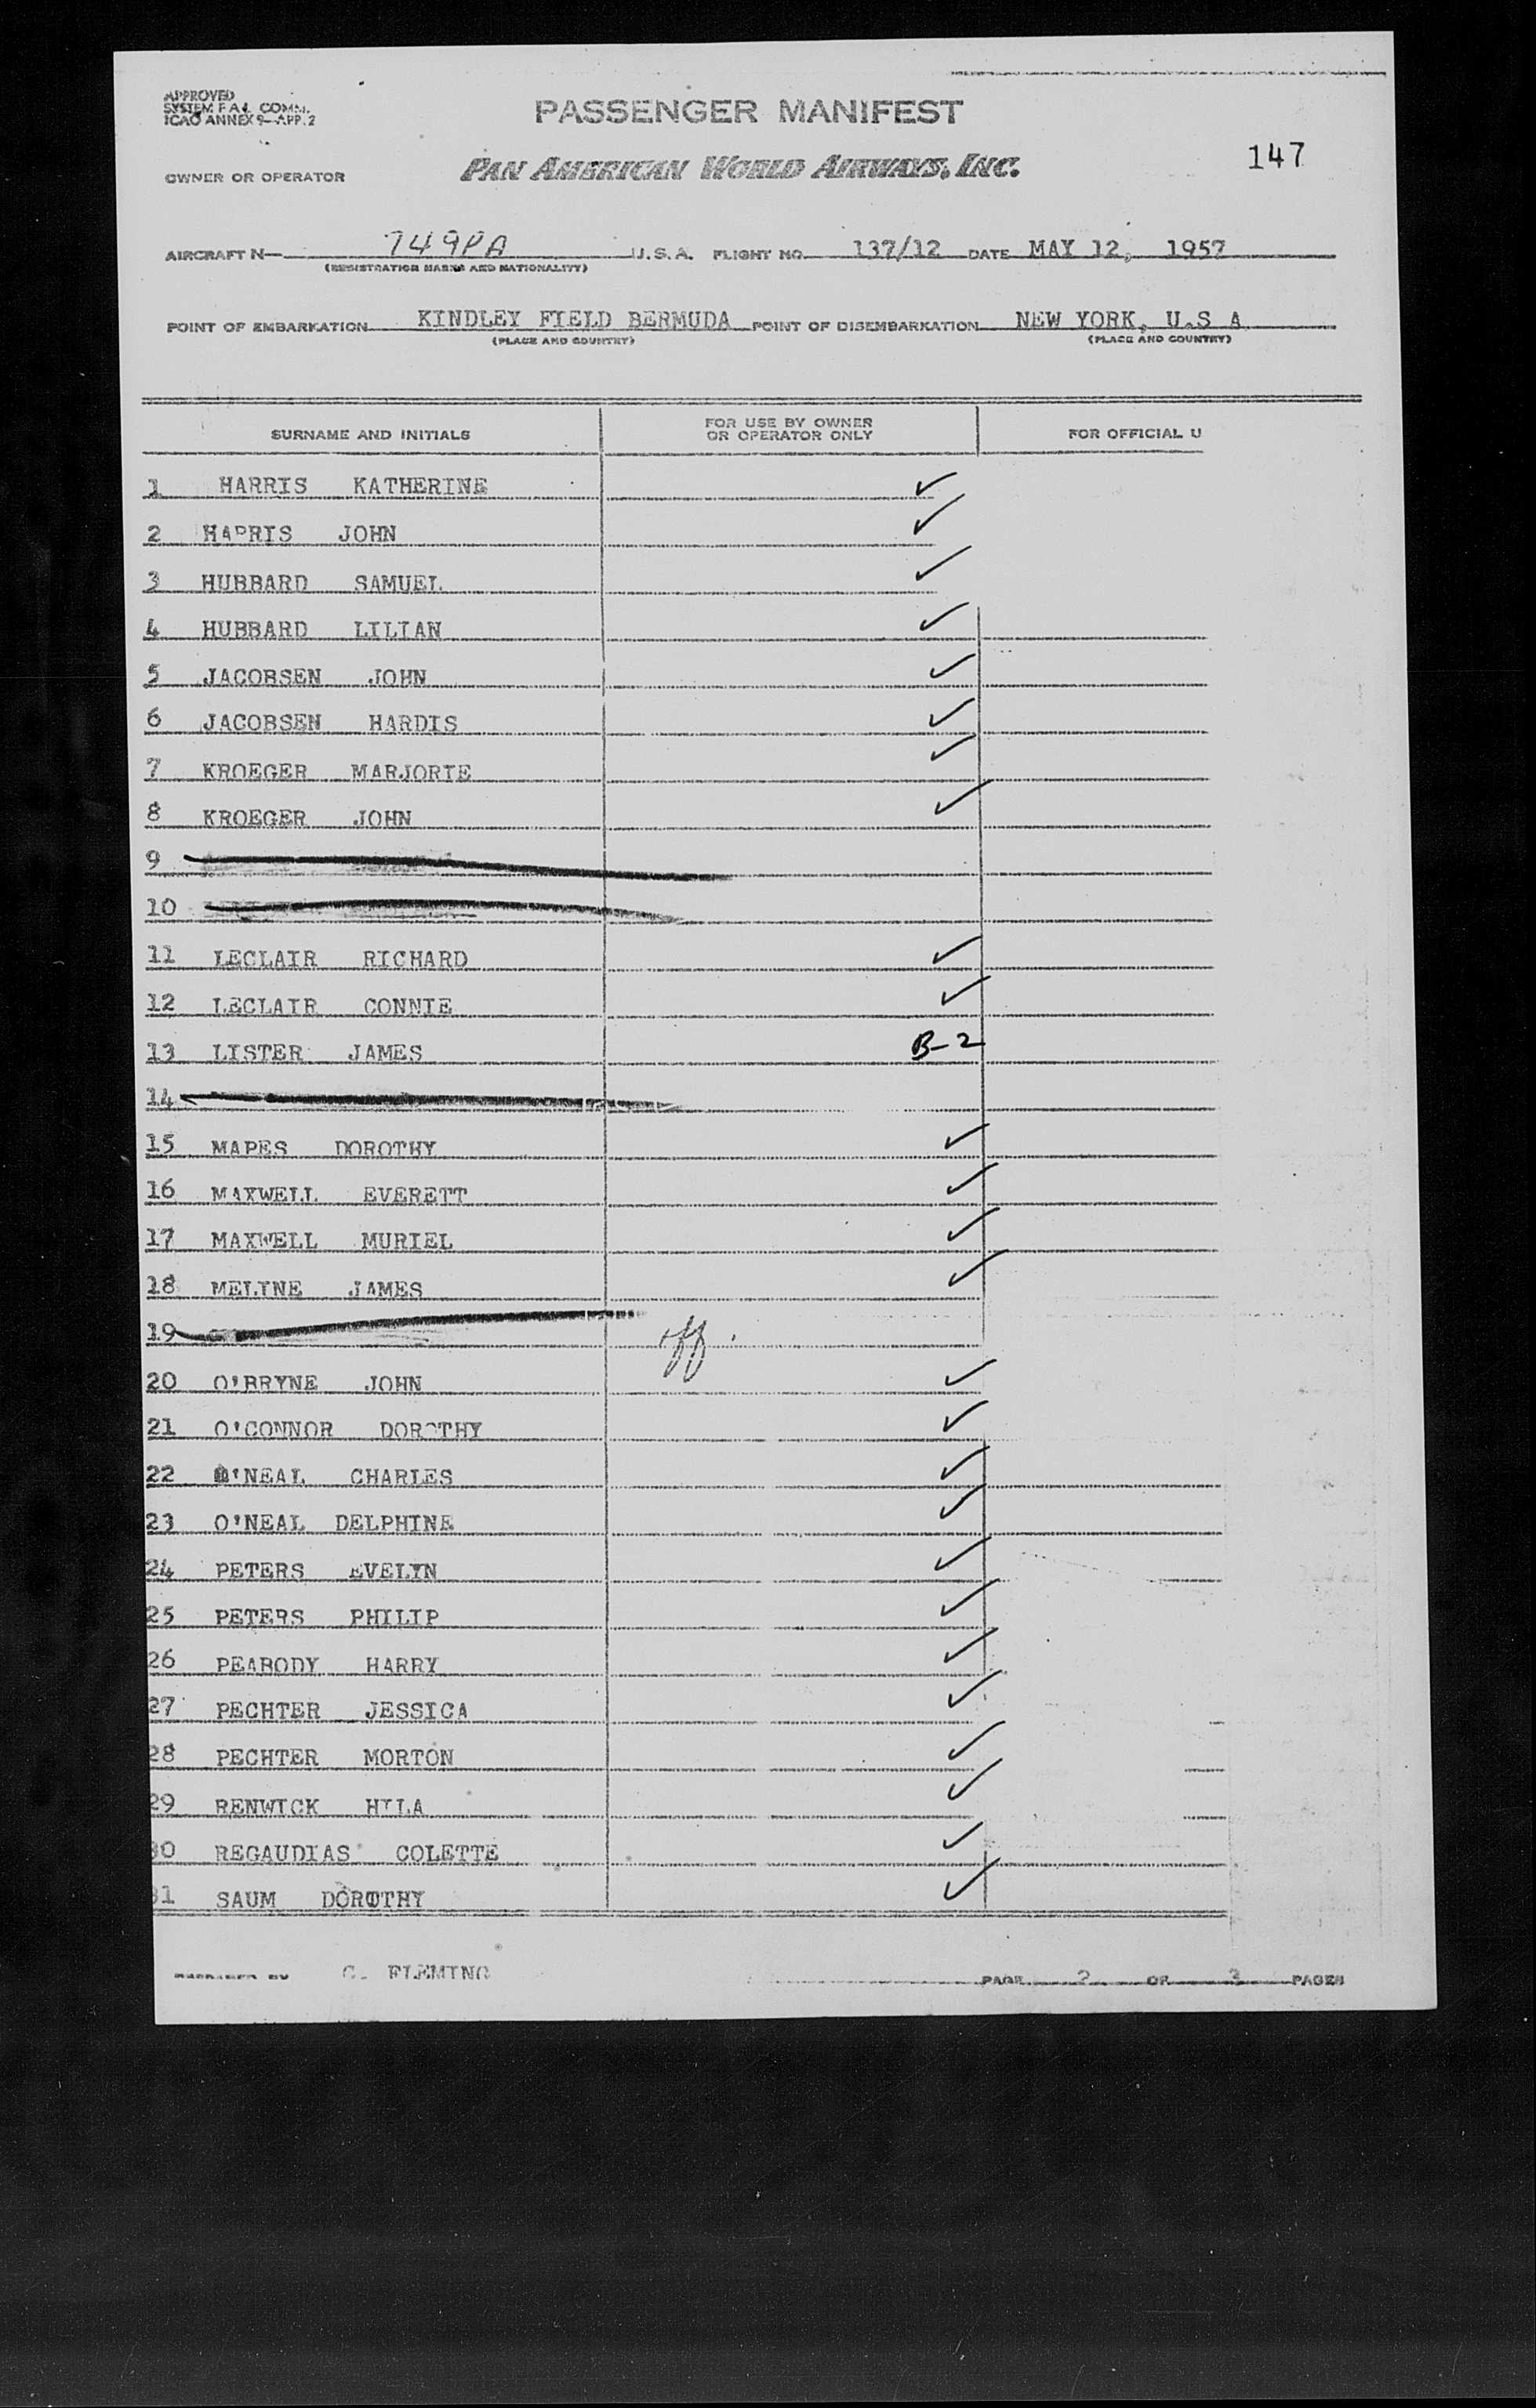 APPROVED
SYSTEM F.A.L. COMM.
ICAO ANNEX 9—APP. 2
PASSENGER MANIFEST
147
OWNER OR OPERATOR PAN AMERICAN WORLD AIRWAYS, INC.
AIRCRAFT N— 749PA U.S.A. FLIGHT NO. 137/12 DATE MAY 12, 1957
(REGISTRATION MARKS AND NATIONALITY)
POINT OF EMBARKATION KINDLEY FIELD BERMUDA POINT OF DISEMBARKATION NEW YORK, U.S A
(PLACE AND COUNTRY) (PLACE AND COUNTRY)
SURNAME AND INITIALS FOR USE BY OWNER OR OPERATOR ONLY FOR OFFICIAL U
1 HARRIS KATHERINE ✓
2 HARRIS JOHN ✓
3 HUBBARD SAMUEL ✓
4 HUBBARD LILIAN ✓
5 JACOBSEN JOHN ✓
6 JACOBSEN HARDIS ✓
7 KROEGER MARJORIE ✓
8 KROEGER JOHN ✓
9
10
11 LECLAIR RICHARD ✓
12 LECLAIR CONNIE ✓
13 LISTER JAMES B-2
14
15 MAPES DOROTHY ✓
16 MAXWELL EVERETT ✓
17 MAXWELL MURIEL ✓
18 MELINE JAMES ✓
19 off
20 O'BRYNE JOHN ✓
21 O'CONNOR DOROTHY ✓
22 O'NEAL CHARLES ✓
23 O'NEAL DELPHINE ✓
24 PETERS EVELYN ✓
25 PETERS PHILIP ✓
26 PEABODY HARRY ✓
27 PECHTER JESSICA ✓
28 PECHTER MORTON ✓
29 RENWICK HILA ✓
30 REGAUDIAS COLETTE ✓
31 SAUM DOROTHY ✓
PREPARED BY C. FLEMING PAGE 2 OF 3 PAGES